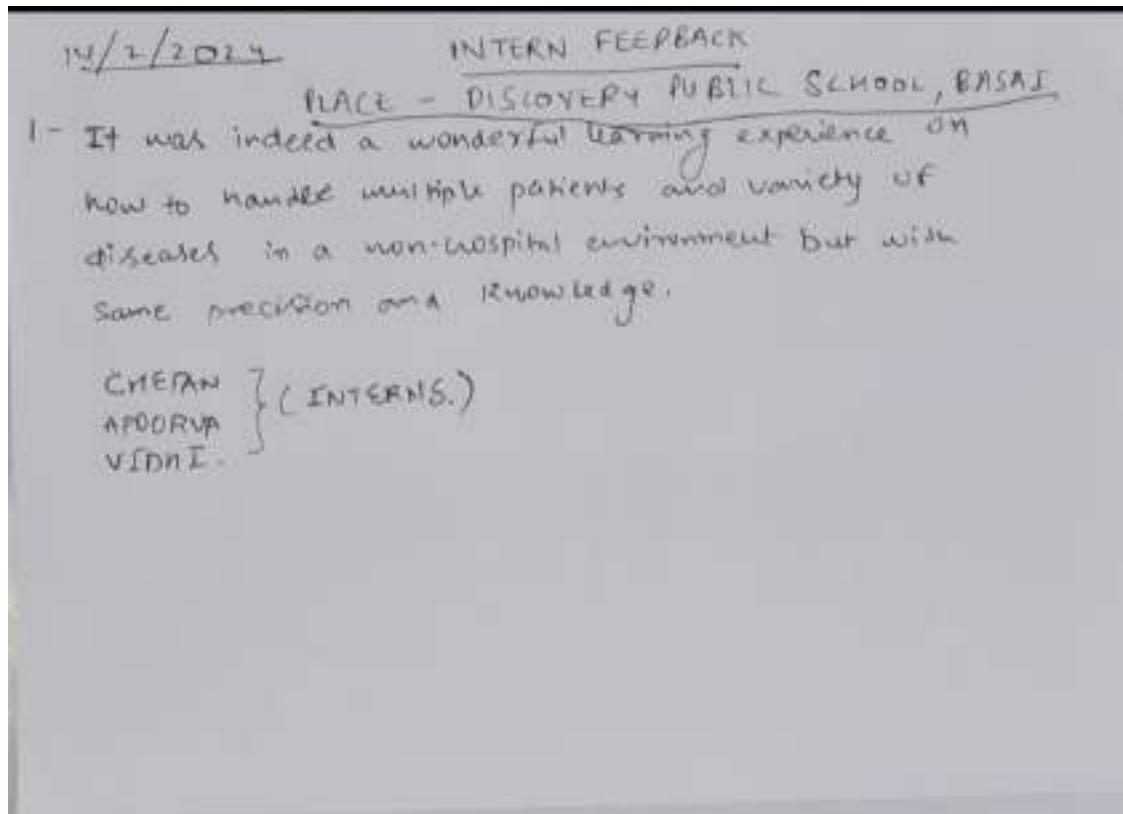 14/2/2024
INTERN FEEDBACK
PLACE - DISCOVERY PUBLIC SCHOOL, BASAI
1- It was indeed a wonderful learning experience on
how to handle multiple patients and variety of
diseases in a non-hospital environment but with
same precision and knowledge.
CHETAN
APOORVA
VIDHI.
(INTERNS.)